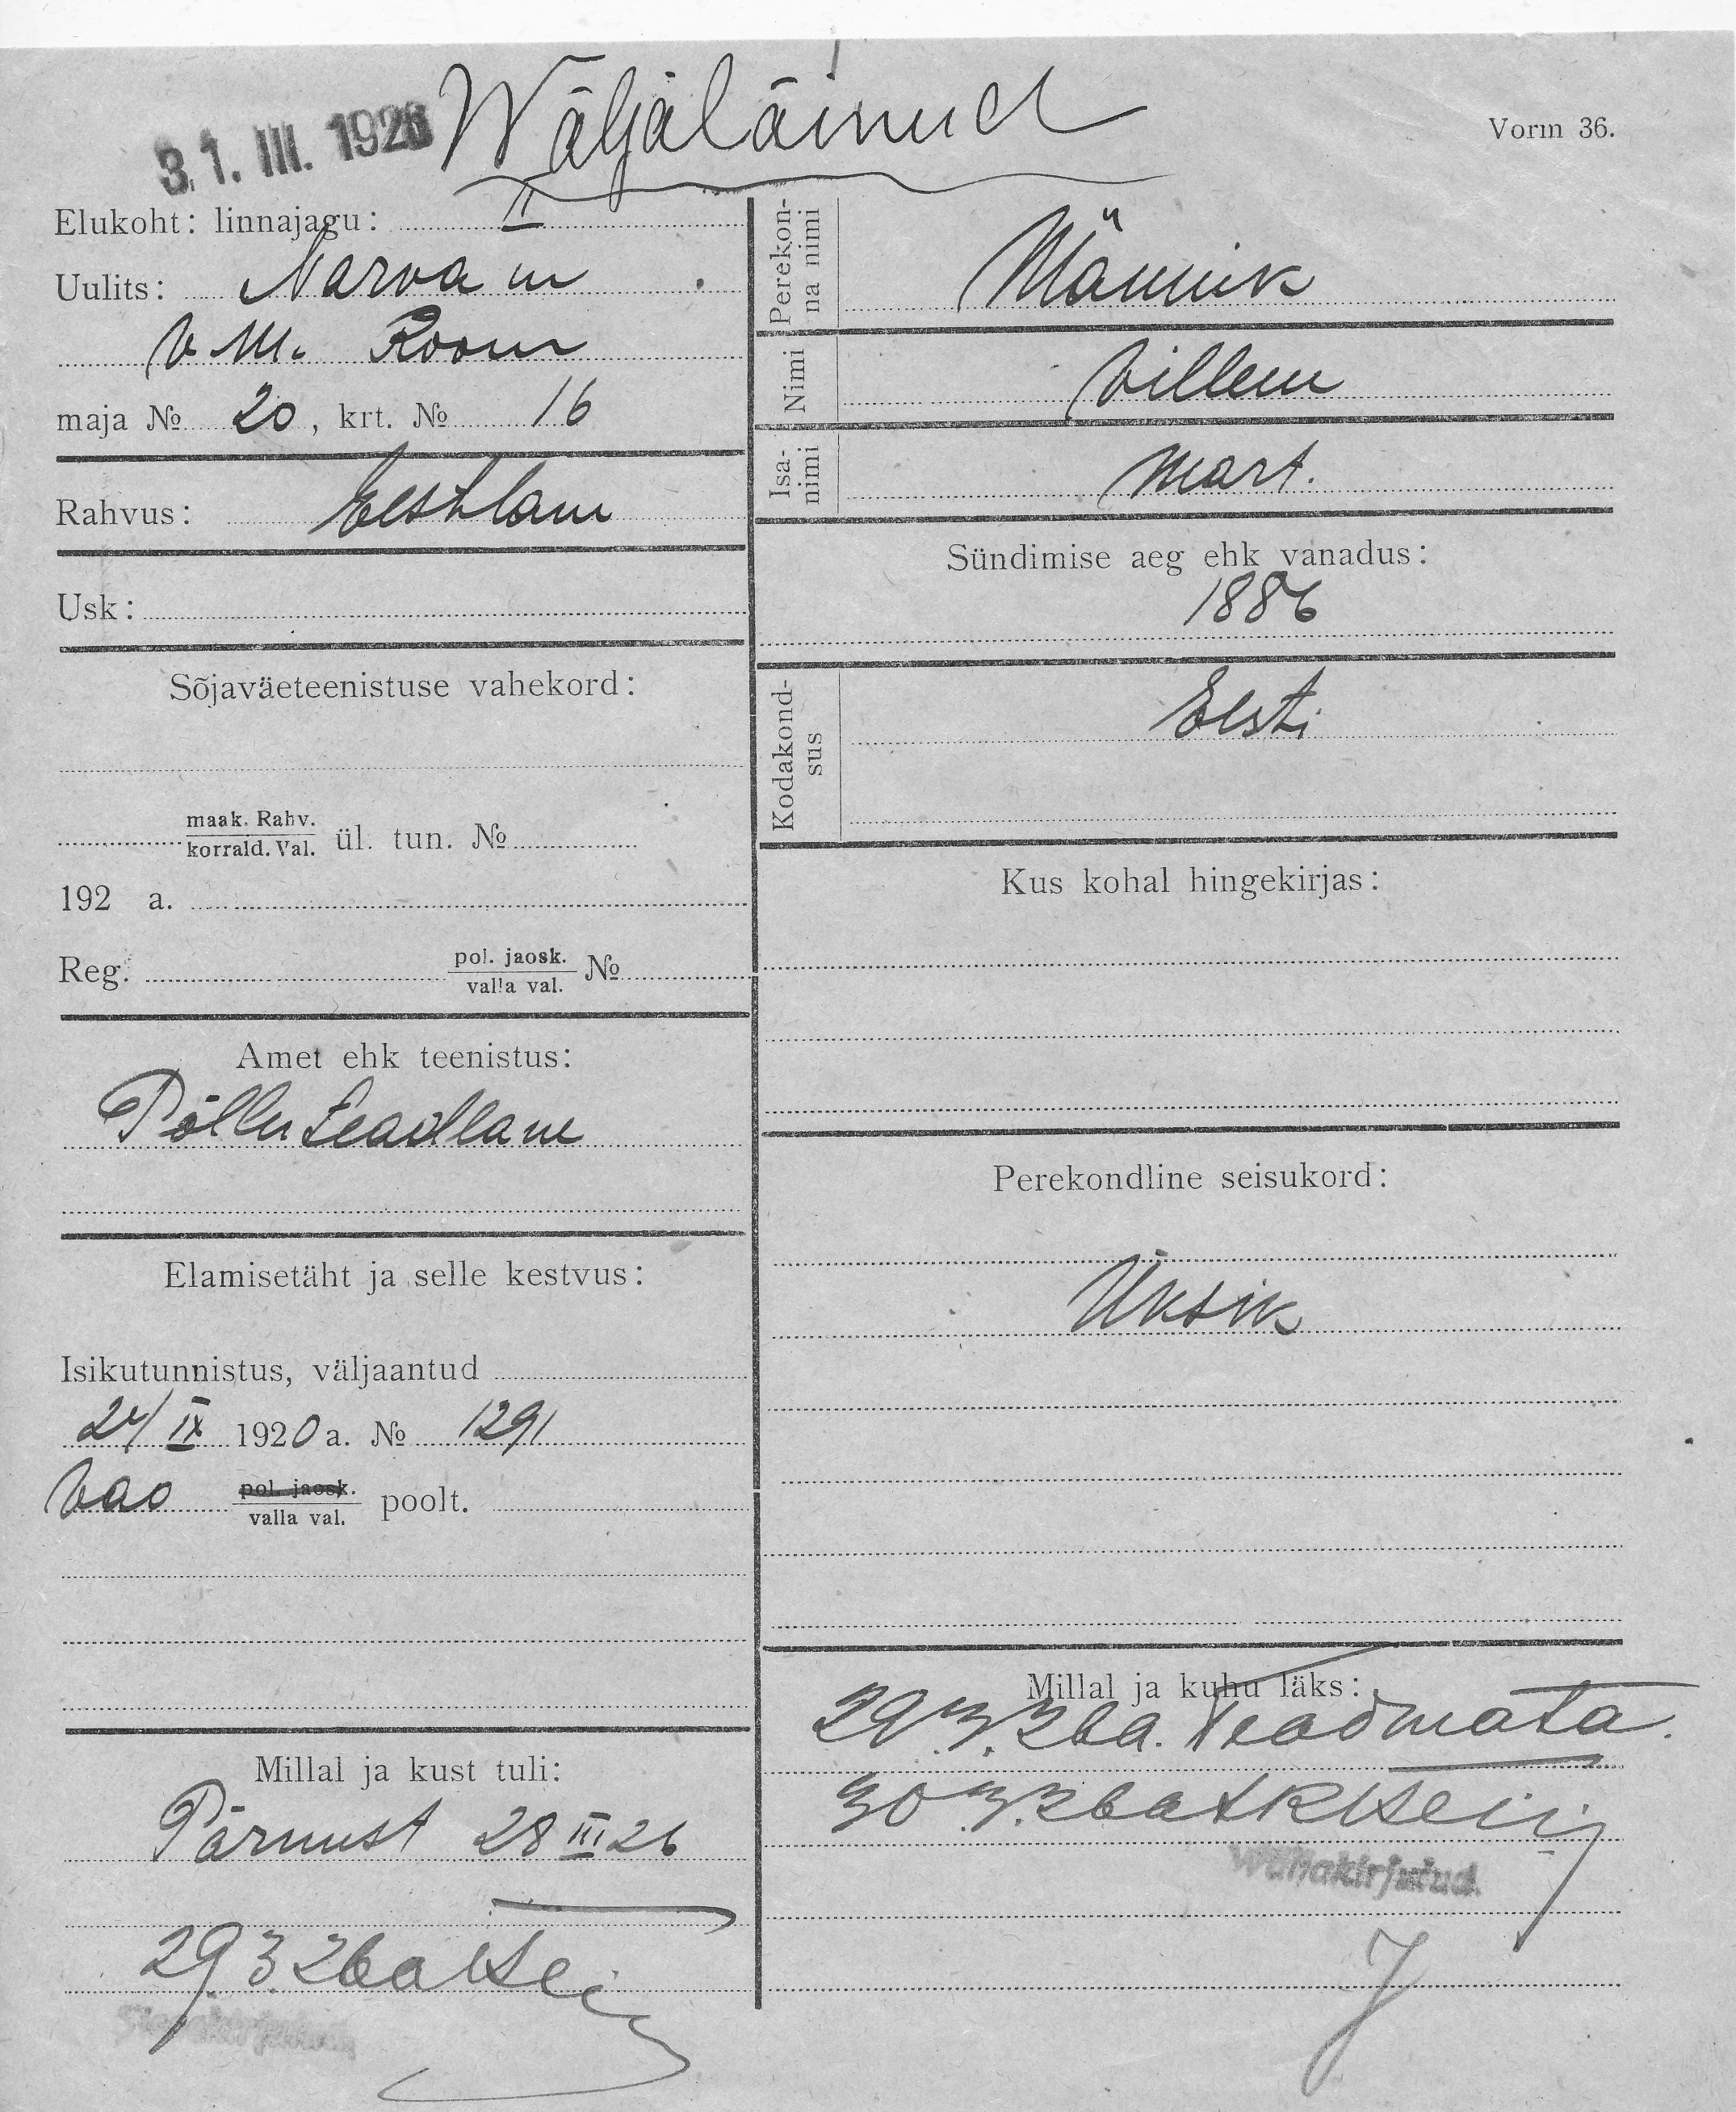 31. III. 1926
Wäljaläinud
Vorm 36.
Elukoht: linnajagu: II
Uulits: Narva m
V. M. Room
maja № 20, krt. № 16
Rahvus: Eestlane
Usk:
Sõjaväeteenistuse vahekord:
maak. Rahv.
korrald. Val. ül. tun. №
192 a.
Reg. pol. jaosk.
valla val. №
Amet ehk teenistus:
Põlluteadlane
Elamisetäht ja selle kestvus:
Isikutunnistus, väljaantud
24/IX 1920 a. № 1291
Vao pol. jaosk.
valla val. poolt.
Millal ja kust tuli:
Pärnust 28 III 26
29.3.26a
Sissekirjutud
Perekon-
na nimi Männik
Nimi Villem
Isa-
nimi Mart.
Sündimise aeg ehk vanadus:
1886
Kodakond-
sus Eesti
Kus kohal hingekirjas:
Perekondline seisukord:
Üksik
Millal ja kuhu läks:
29.3.26a. Teadmata.
30.3.26a
Wäljakirjutud.